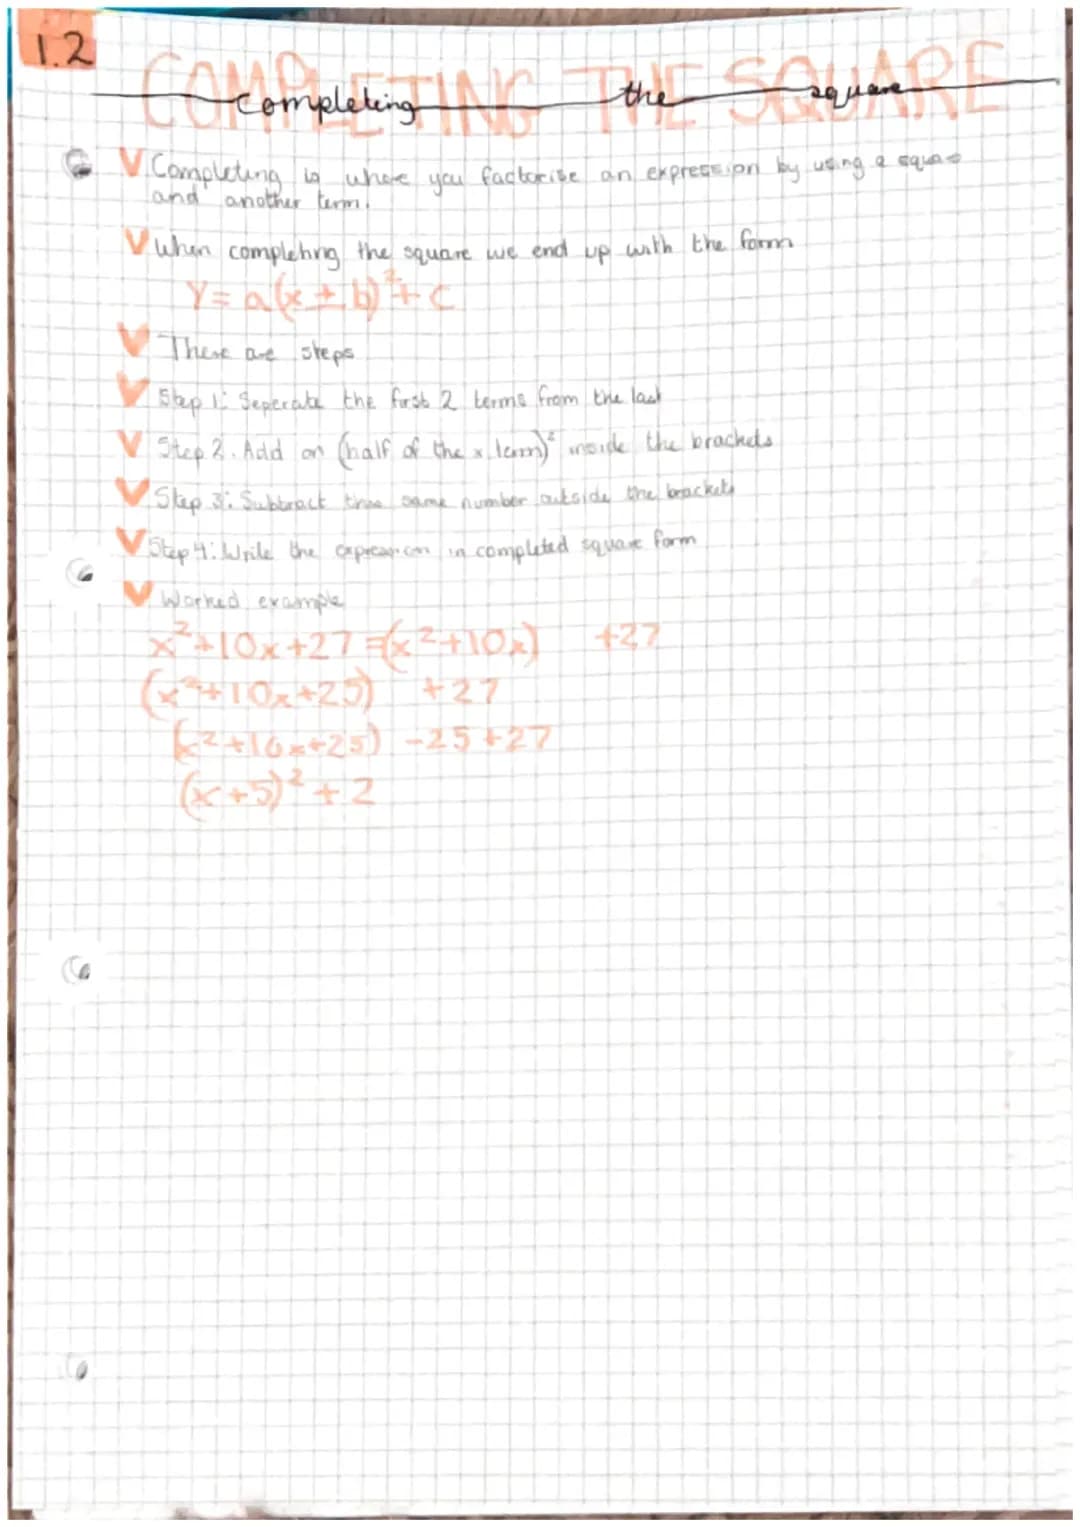 1.2
COMPLETING THE SQUARE
Completing the square
Completing is where you factorise an expression by using a square
and another term.
When completing the square we end up with the form
Y = a(x ± b)² + c
There are steps
Step 1: Seperate the first 2 terms from the last
Step 2. Add on (half of the x term)² inside the brackets
Step 3: Subtract same number outside the brackets
Step 4: Write the expression in completed square form
Worked example
x²+10x+27 =(x²+10x) +27
(x²+10x+25) +27
(x²+10x+25) -25+27
(x+5)²+2